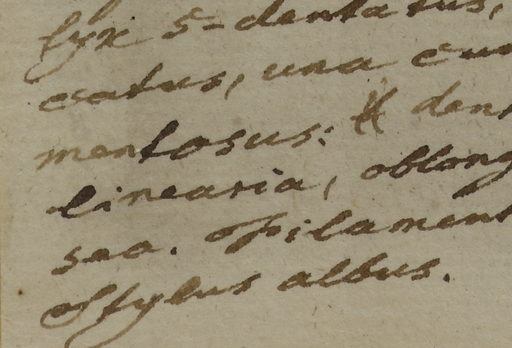 lyx 5-dentatus,
catus, una cum
mentosus: dent
linearia, oblong
sea. filament
Stylus albus.